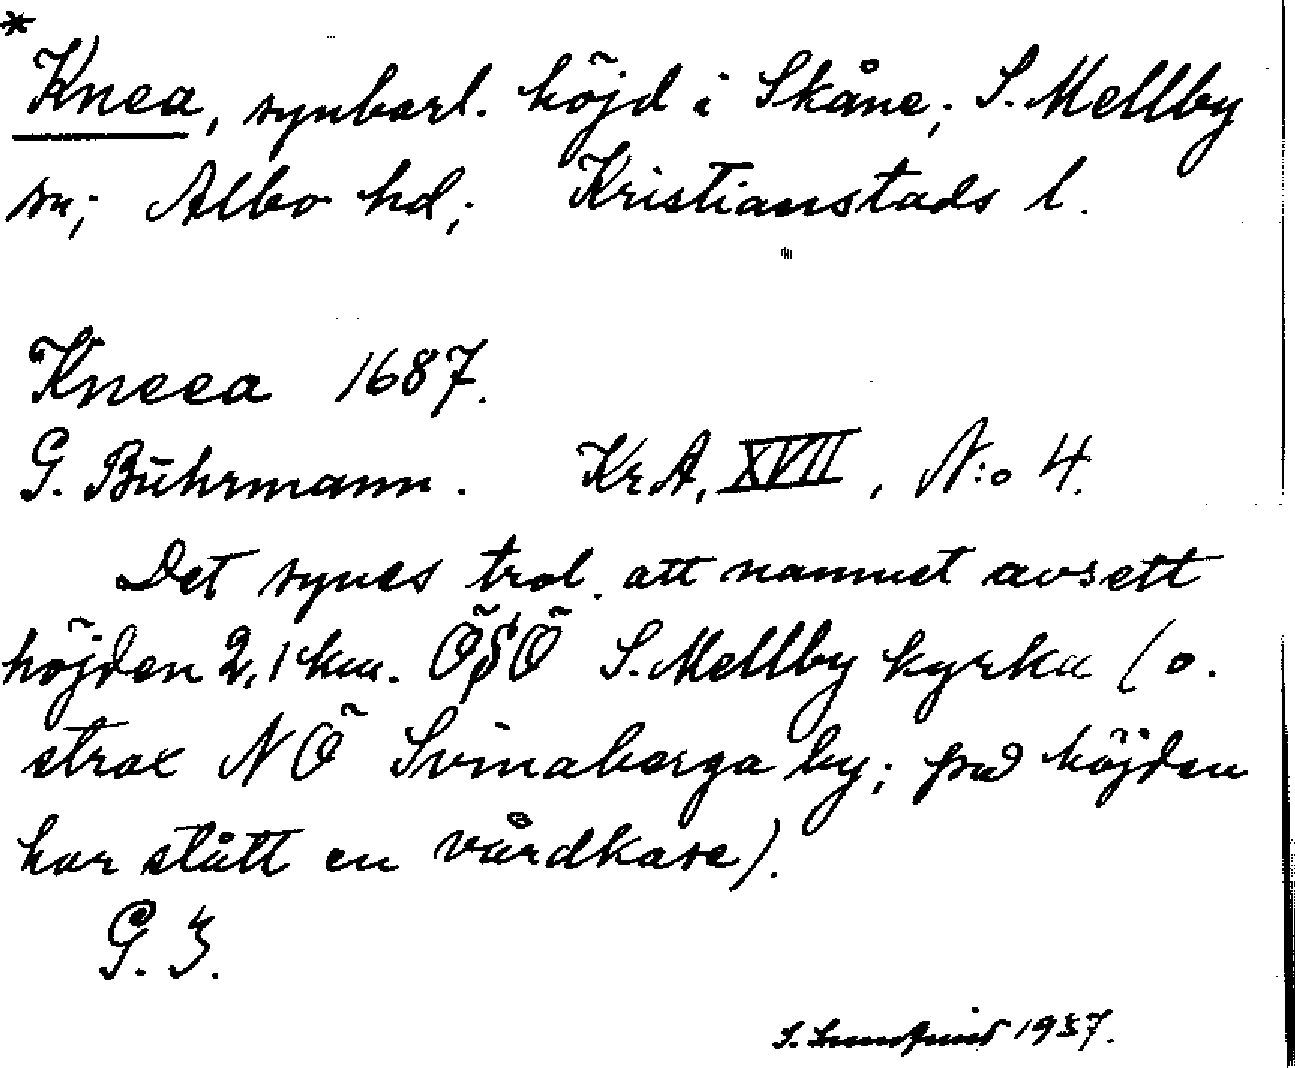 *
Knea, synbarl. höjd i Skåne; S. Mellby
sn; Albo hd; Kristianstads l.
Kneea 1687.
G. Bührmann. Kr.A, XVII, N:o 4.
Det synes trol. att namnet avsett
höjden 2,1 km. ÖSÖ S. Mellby kyrka (o.
strax NÖ Svinaberga by; på höjden
har stått en vårdkase).
G. 3.
S. Lundqvist 1937.